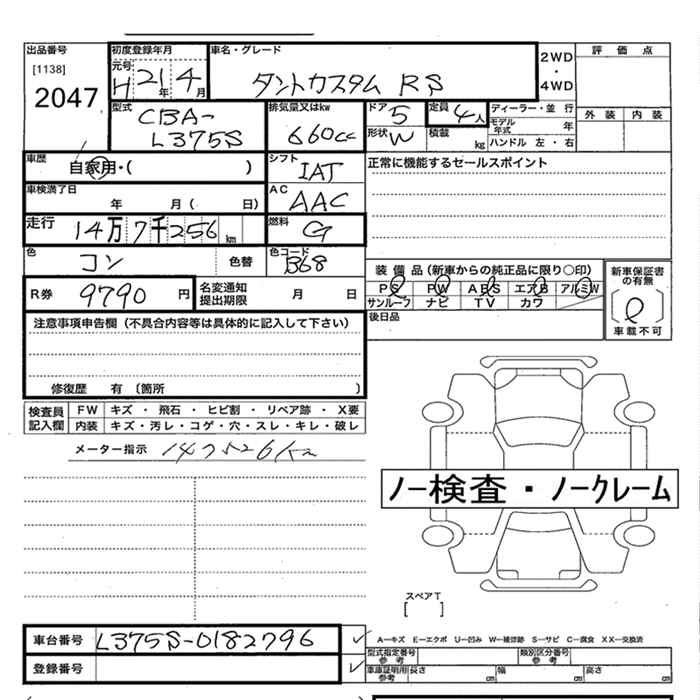 出品番号
[1138]
2047
初度登録年月
元号
H 21年 4月
車名・グレード
タントカスタム RS
2WD
・
4WD
評価点
外装 内装
型式
CBA-
L375S
排気量又はkw
660cc
ドア 5
形状 W
定員 4人
積載 kg
ディーラー・並行
モデル年式 年
ハンドル 左・右
車歴
自家用・( )
シフト
IAT
正常に機能するセールスポイント
車検満了日
年 月( 日)
AC
AAC
走行 14万7千256km
燃料
G
色
コン
色替
色コード
B68
装備品(新車からの純正品に限り○印)
PS PW ABS エアB アルミW
サンルーフ ナビ TV カワ
新車保証書の有無
車載不可
R券 9790円
名変通知
提出期限
月 日
後日品
注意事項申告欄(不具合内容等は具体的に記入して下さい)
修復歴 有〔箇所 〕
検査員
記入欄
FW キズ・飛石・ヒビ割・リペア跡・X要
内装 キズ・汚レ・コゲ・穴・スレ・キレ・破レ
メーター指示
ノー検査・ノークレーム
スペアT
[ ]
車台番号 L375S-0182796
登録番号
A-キズ E-エクボ U-凹み W-補修跡 S-サビ C-腐食 XX-交換済
型式指定番号
参考
類別区分番号
参考
車庫証明用
参考
長さ cm 幅 cm 高さ cm